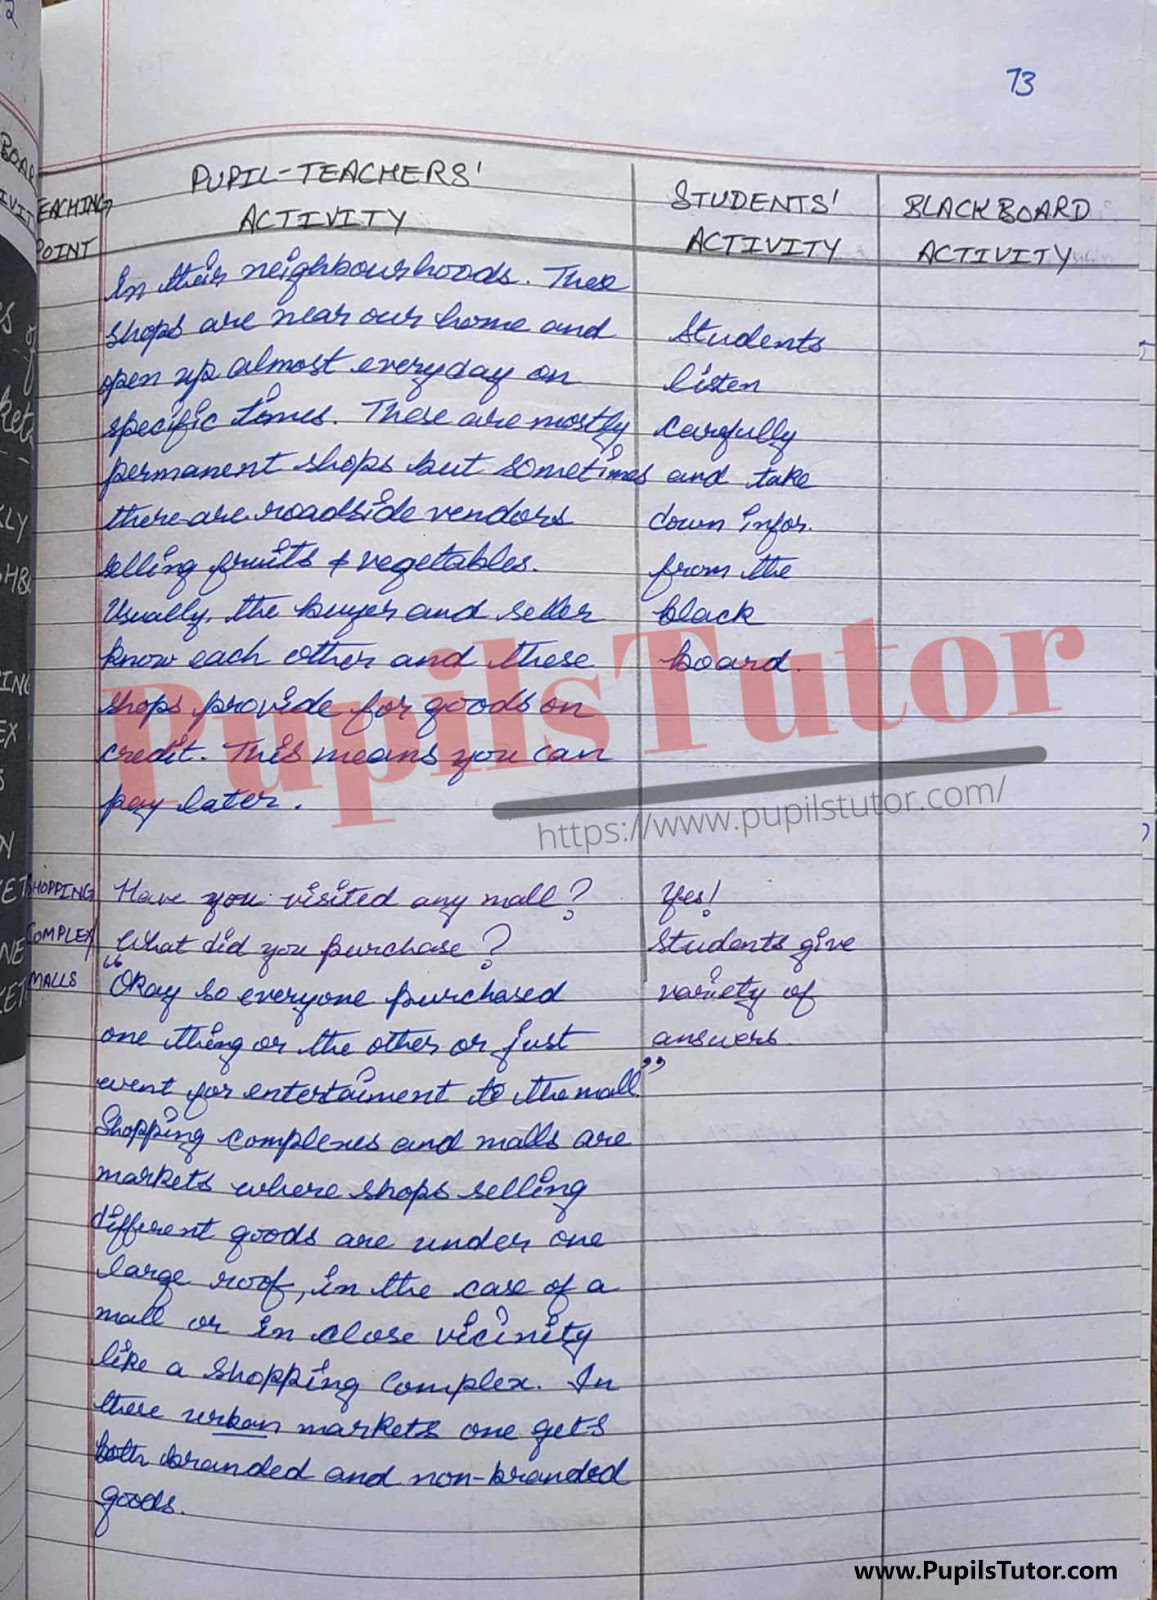 73
TEACHING POINT
PUPIL-TEACHERS' ACTIVITY
STUDENTS' ACTIVITY
BLACKBOARD ACTIVITY
In their neighbourhoods. These
shops are near our home and
open up almost everyday on
specific times. These are mostly
permanent shops but sometimes
there are roadside vendors
selling fruits & vegetables.
Usually, the buyer and seller
know each other and these
shops provide for goods on
credit. This means you can
pay later.
Students
listen
carefully
and take
down infor.
from the
black
board.
SHOPPING
COMPLEX
MALLS
Have you visited any mall?
What did you purchase?
"Okay so everyone purchased
one thing or the other or just
went for entertaiment to the mall"
Shopping complexes and malls are
markets where shops selling
different goods are under one
large roof, in the case of a
mall or in close vicinity
like a shopping complex. In
these urban markets one gets
both branded and non-branded
goods.
Yes!
Students give
variety of
answers.
PupilsTutor
https://www.pupilstutor.com/
www.PupilsTutor.com